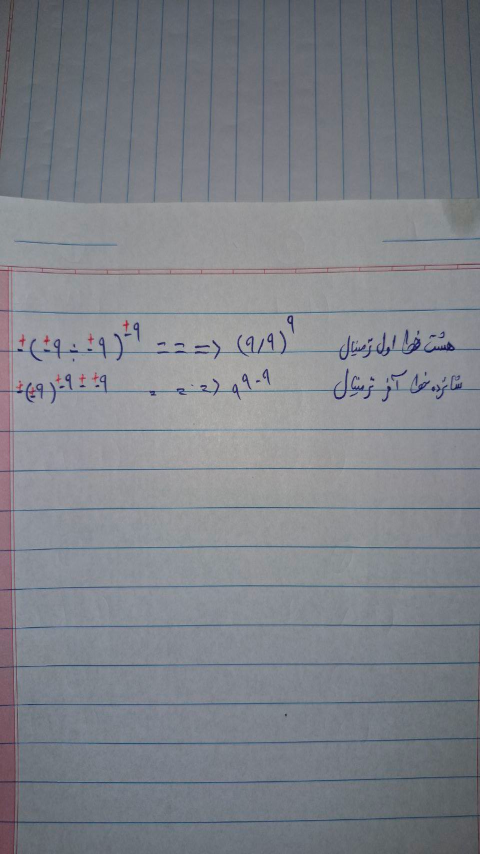 ±(±9 ÷ ±9)^±9 ===> (9/9)^9 هشت خط اول ترمینال
±(±9)^±9 ± ±9 ===> 9^9-9 شانزده خط آخر ترمینال